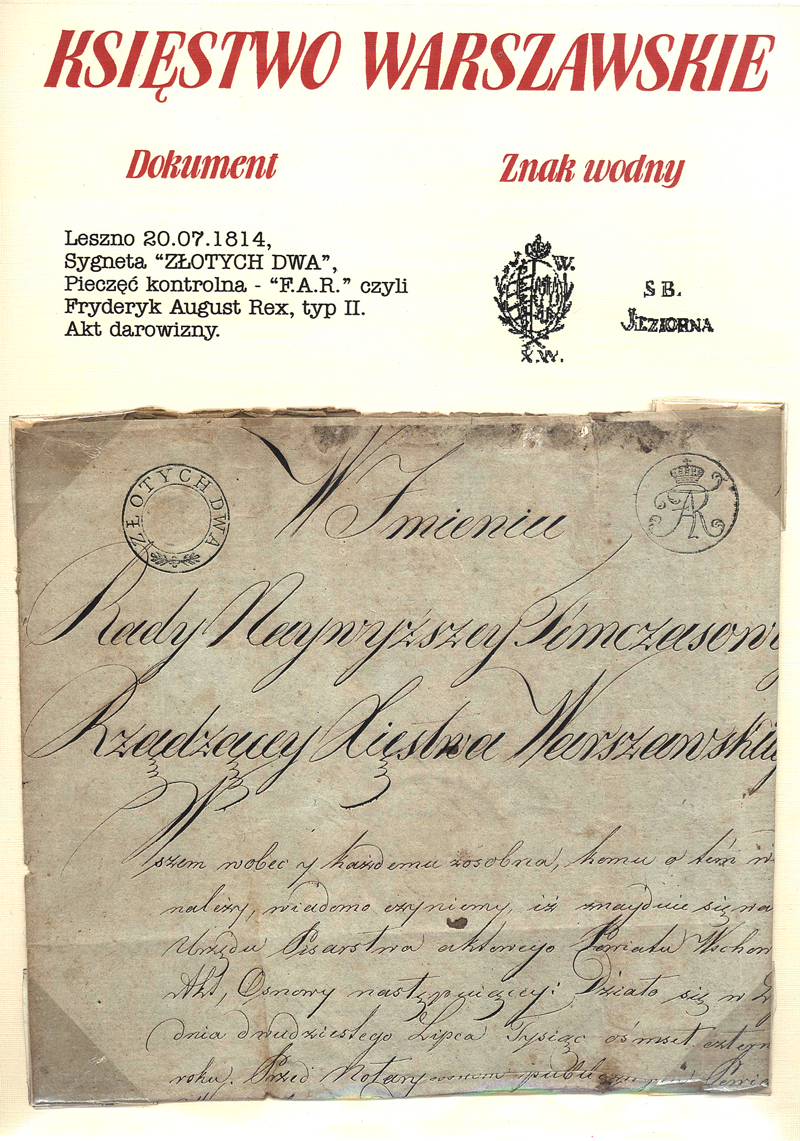 KSIĘSTWO WARSZAWSKIE
Dokument
Znak wodny
Leszno 20.07.1814,
Sygneta “ZŁOTYCH DWA”,
Pieczęć kontrolna - “F.A.R.” czyli
Fryderyk August Rex, typ II.
Akt darowizny.
J. W.
X.W.
S B.
JEZIORNA
ZŁOTYCH DWA
FAR
W Imieniu
Rady Naywyższey Tymczasowo
Rządzącey Xięstwa Warszawskiey
Wszem wobec y każdemu zosobna, komu o tém w
należy, wiadomo czyniemy, iż znayduie się na
Urzędu Pisarstwa aktowego Powiatu Wschow
Akt, Osnowy następuiącey: Działo się w
dnia dwudziestego Lipca Tysiąc ośmset cztern
roku. Przed Notary publicznym Powia